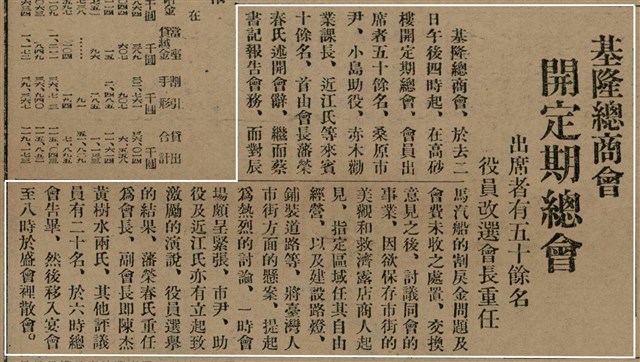 基隆總商會
開定期總會
出席者有五十餘名
役員改選會長重任
基隆總商會、於去二
日午後四時起、在高砂
樓開定期總會、會員出
席者五十餘名、桑原市
尹、小島助役、赤木勸
業課長、近江氏等來賓
十餘名、首由會長藩榮
春氏述開會辭、繼而蔡
書記報告會務、而對辰
馬汽船的割戾金問題及
會費未收之處置、交換
意見之後、討議同會的
事業、因欲保存市街的
美觀和救濟露店商人起
見、指定區域任其自由
經營、以及建設路燈、
鋪裝道路等、將臺灣人
市街方面的懸案、提起
為熱烈的討論、一時會
場頗呈緊張、市尹、助
役及近江氏亦有立起致
激勵的演說、役員選舉
的結果、藩榮春氏重任
為會長、副會長即陳杰
黃樹水兩氏、其他評議
員有二十名、於六時總
會告畢、然後移入宴會
至八時於盛會裡散會。
在
當座貸越金 千圓
割引手形 千圓
貸出合計 千圓